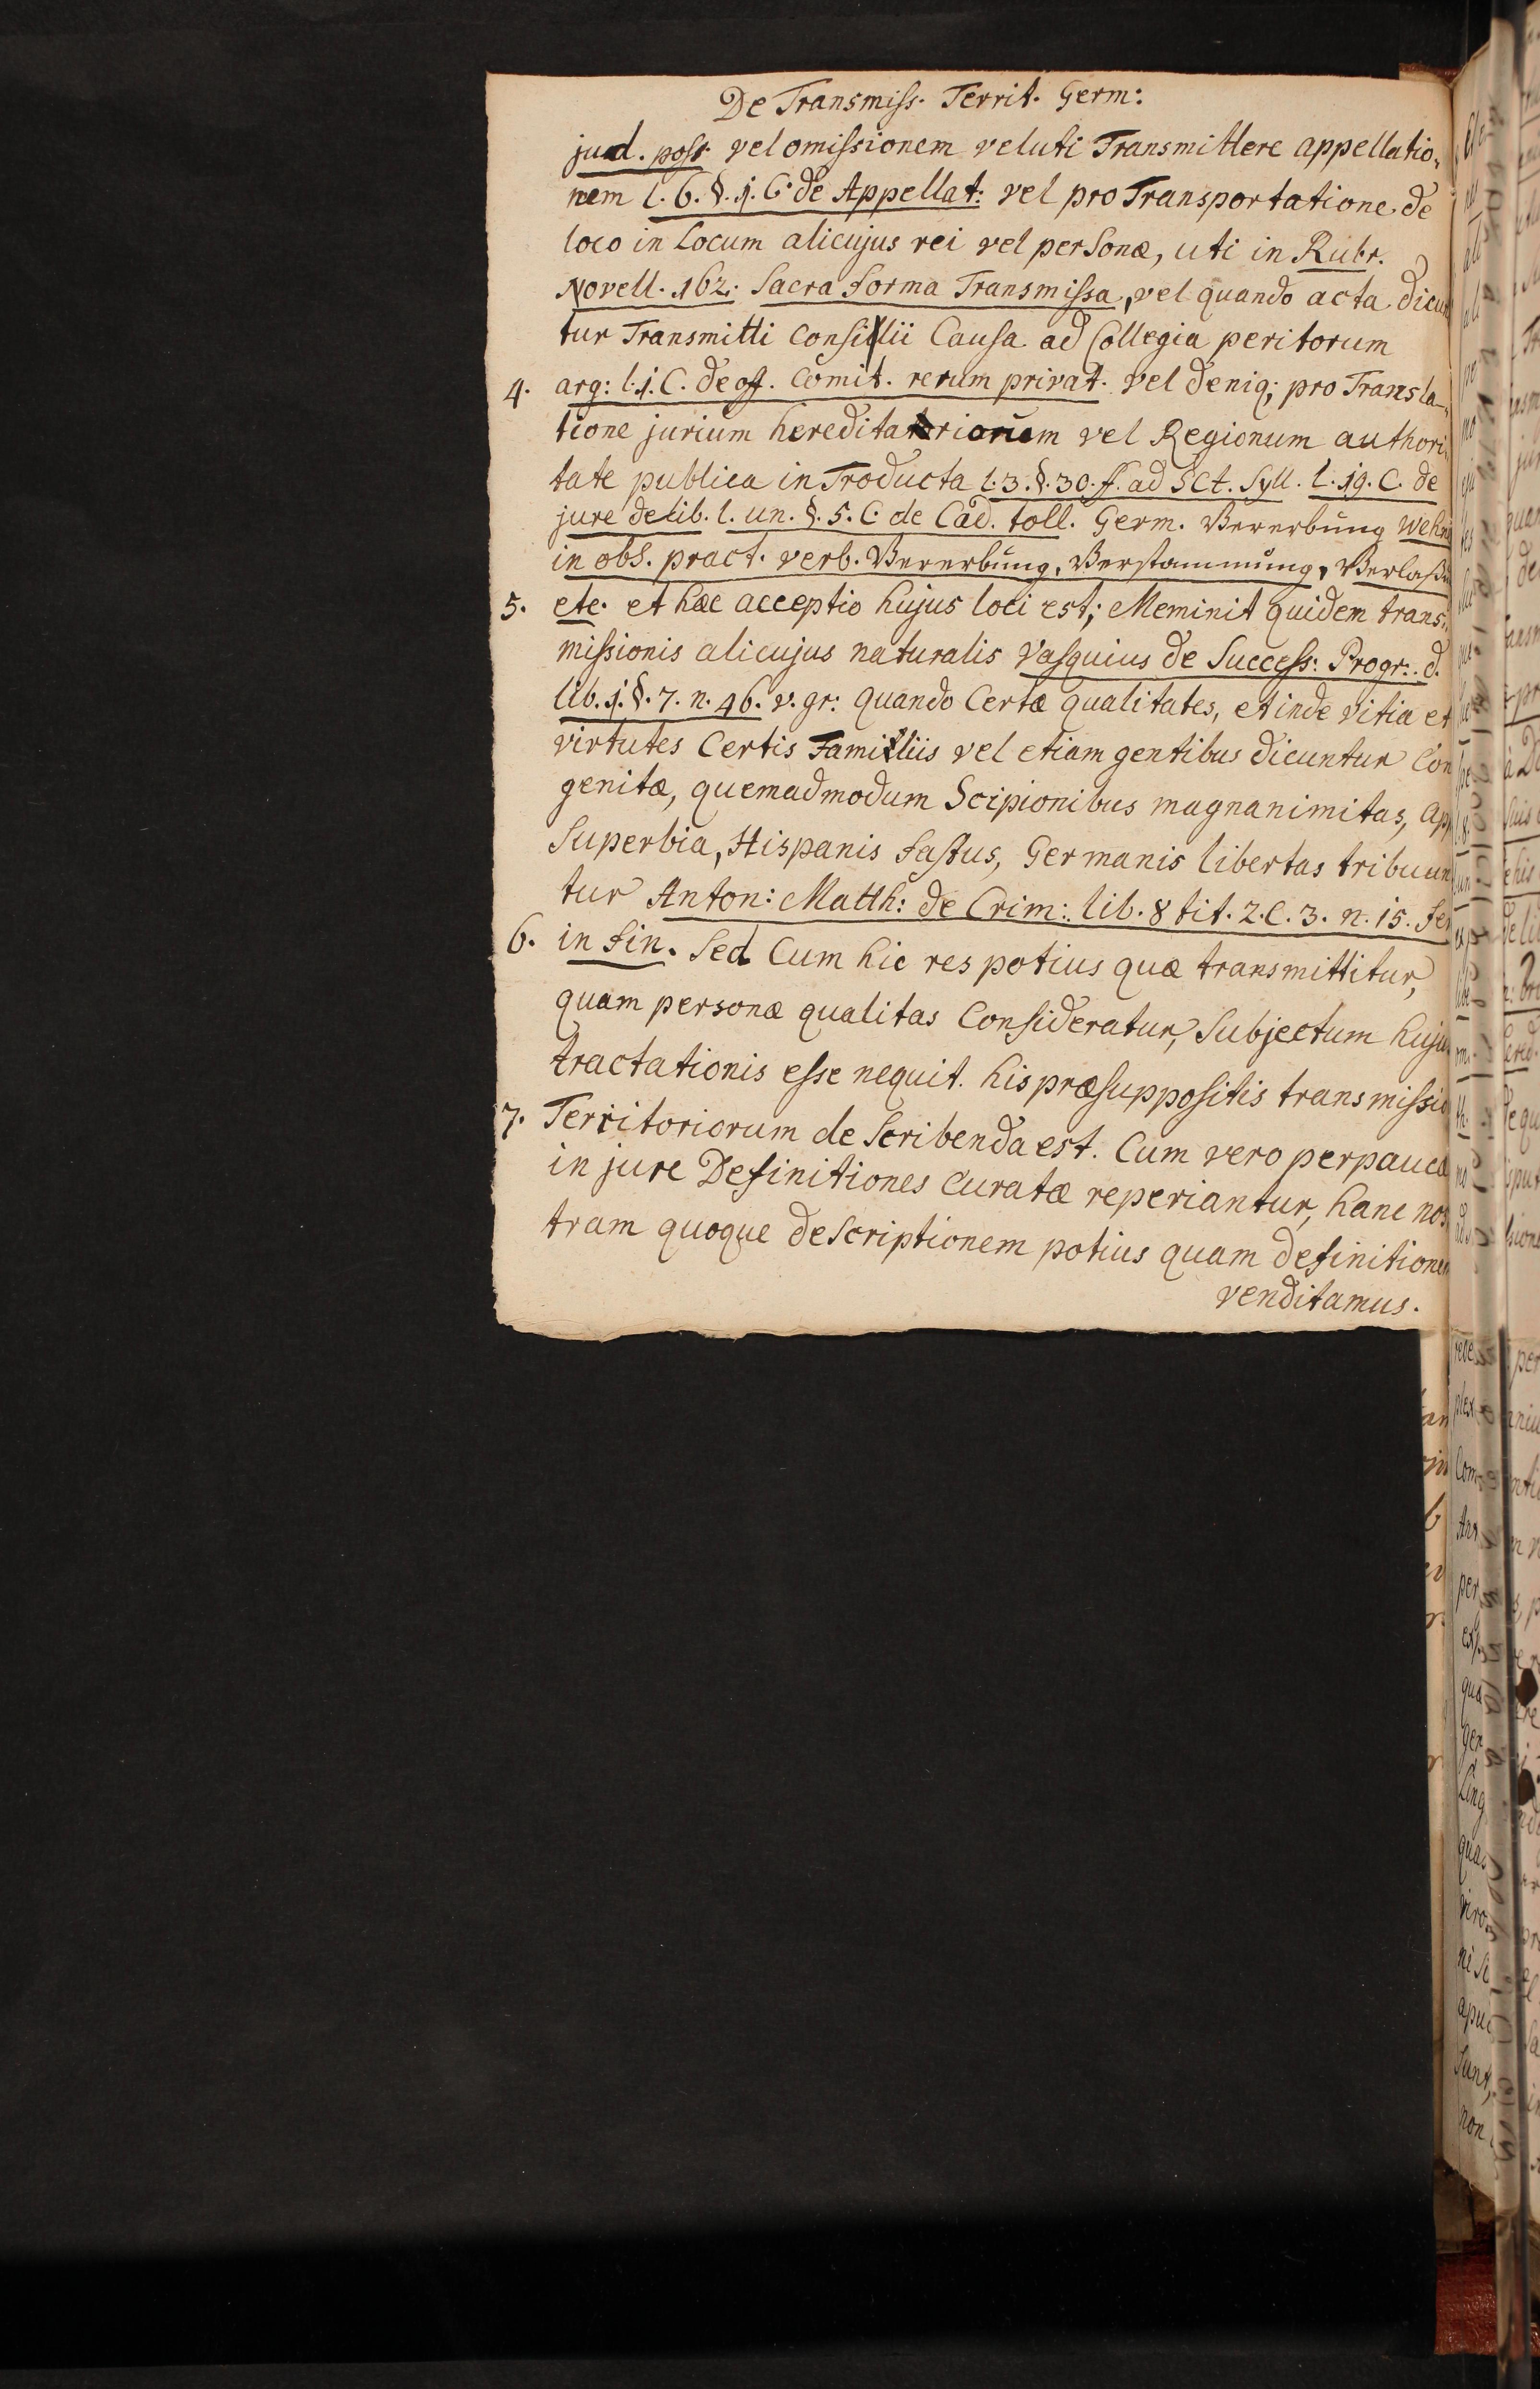 De Transmiss. Territ. Germ:
jud. post. vel omissionem veluti Transmittere appellatio,
nem l. 6. §. 1. C. de Appellat: vel pro Transportatione de
loco in Locum alicujus rei vel personæ, uti in Rubr.
Novell. 162. Sacra forma Transmissa, vel quando acta dicun
tur Transmitti Consillii Causa ad Collegia peritorum
4. arg: l. 1. C. de off. Comit. rerum privat. vel deniq; pro Transla-
tione jurium hereditariorum vel Regionum authori
tate publica inTroducta l. 3. §. 30. ff. ad SCt. Syll. l. 19. C. de
jure delib. l. un. §. 5. C. de Cad. toll. Germ. Vererbung Wehn
in obs. pract. verb. Vererbung, Verstammung, Verlaß
5. etc. et hæc acceptio hujus loci est; Meminit quidem trans,
missionis alicujus naturalis Vasquius de Success: Progr: d.
lib. 1. §. 7. n. 46. v. gr: quando Certæ qualitates, et inde vitia et
virtutes Certis Familiis vel etiam gentibus dicuntur Con
genitæ, quemadmodum Scipionibus magnanimitas, App
Superbia, Hispanis fastus, Germanis libertas tribuun
tur Anton: Matth: de Crim: lib. 8 tit. 2. C. 3. n. 15. fer
6. in fin. Sed Cum hic res potius quæ transmittitur,
quam personæ qualitas Consideratur, Subjectum huju
tractationis esse nequit. his præsuppositis transmissio
7. Territoriorum describenda est. Cum vero perpaucæ
in jure Definitiones Curatæ reperiantur, hanc nos
tram quoque descriptionem potius quam definitionem
venditamus.